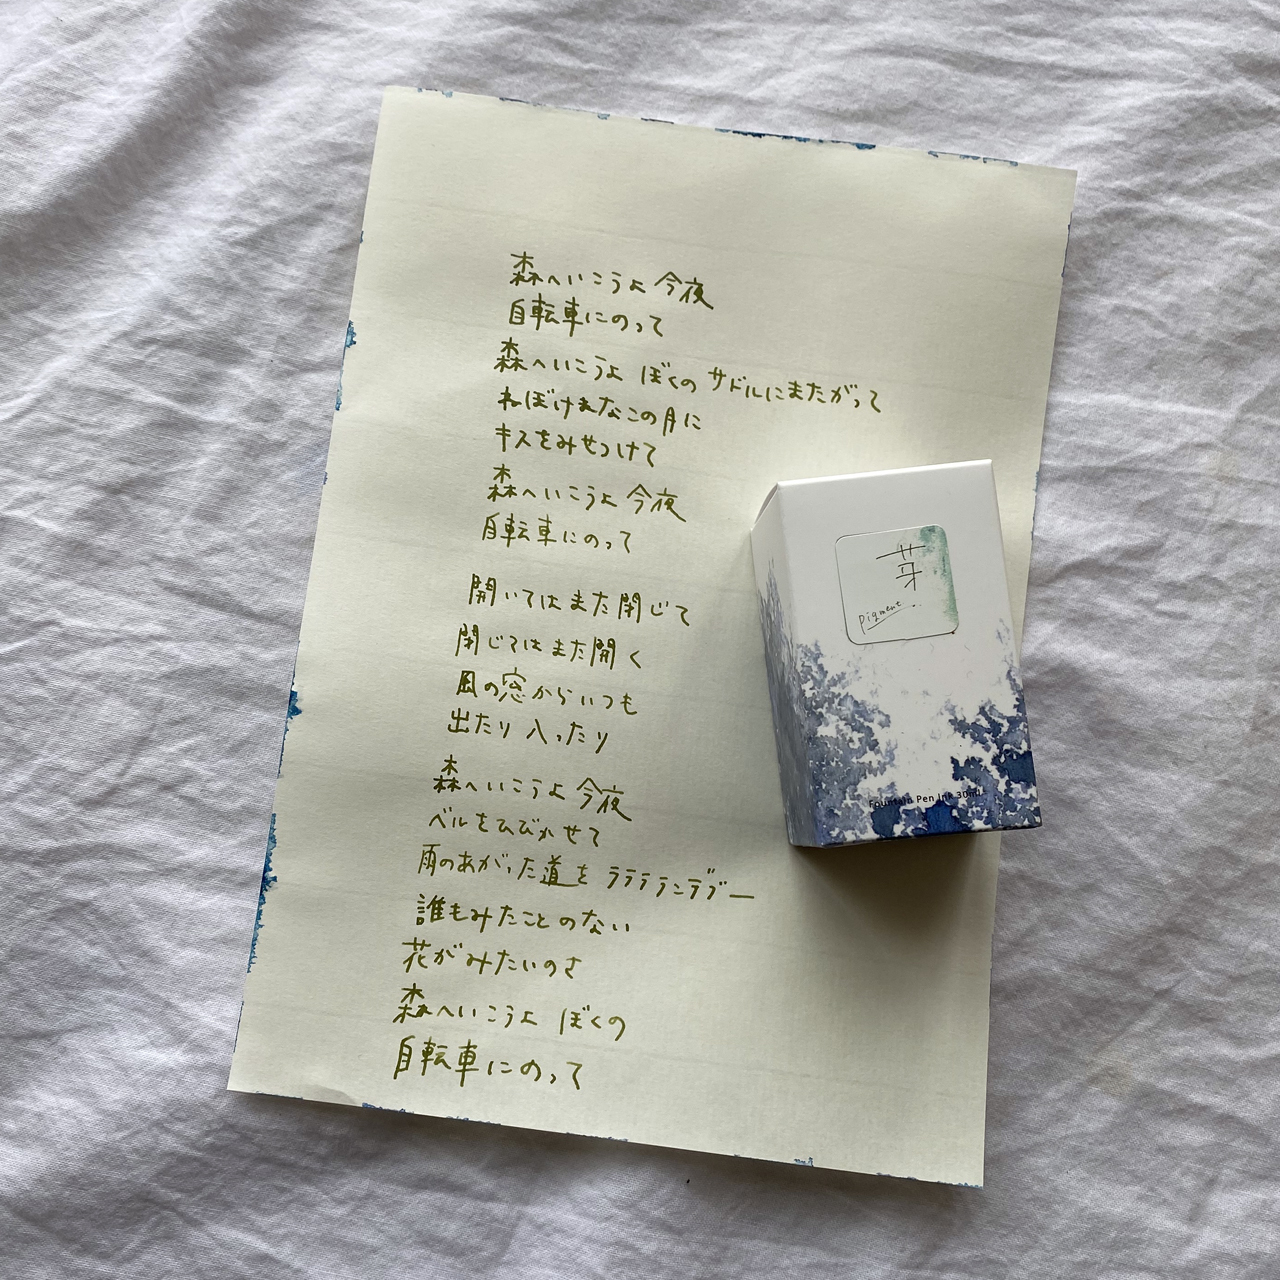 森へいこうよ 今夜
自転車にのって
森へいこうよ ぼくの サドルにまたがって
ねぼけまなこの月に
キスをみせつけて
森へいこうよ 今夜
自転車にのって
開いてはまた閉じて
閉じてはまた開く
風の窓からいつも
出たり 入ったり
森へいこうよ 今夜
ベルをひびかせて
雨のあがった道を ララララ
誰もみたことのない
花がみたいのさ
森へいこうよ ぼくの
自転車にのって
芽
pigment
Fountain Pen Ink 30ml